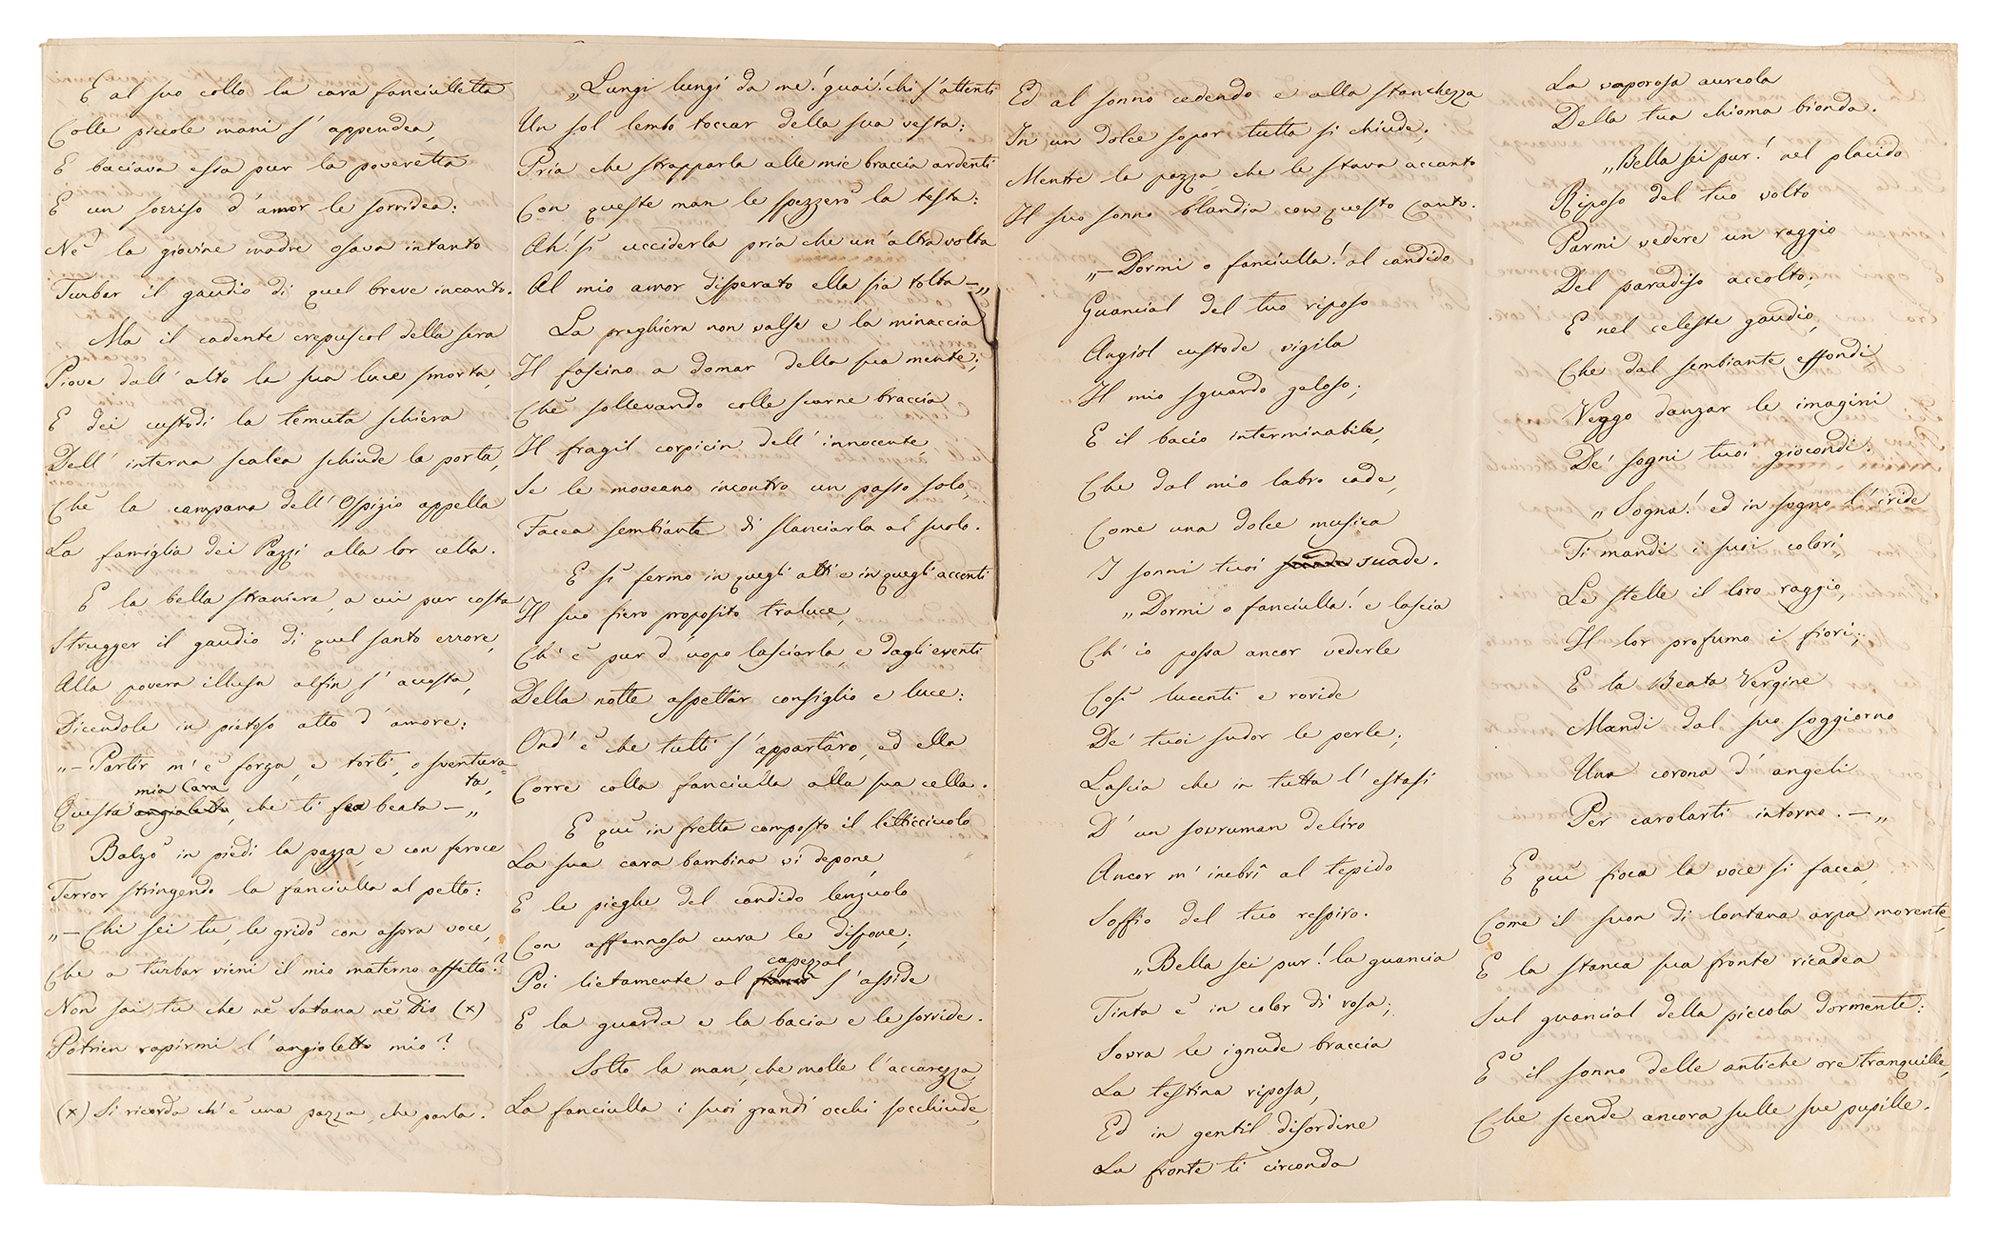 E al suo collo la cara fanciulletta
Colle piccole mani s'appendea,
E baciava essa pur la poveretta
E un sorriso d'amor le sorridea:
Nè la giovine madre osava intanto
Turbar il gaudio di quel breve incanto.
Ma il cadente crepuscol della sera
Piove dall'alto la sua luce smorta,
E dei custodi la temuta schiera
Dell'interna scalea schiude la porta,
Chè la campana dell'Ospizio appella
La famiglia dei Pazzi alla lor cella.
E la bella straniera, a cui pur costa
Strugger il gaudio di quel santo errore,
Alla povera illusa alfin s'accosta,
Dicendole in pietoso atto d'amore:
„— Partir m'è forza, e torti, o sventura=
ta,
mia Cara
Questa angioletta, che ti fea beata —„
Balzò in piedi la pazza, e con feroce
Terror stringendo la fanciulla al petto:
„— Chi sei tu, le gridò con aspra voce,
Che a turbar vieni il mio materno affetto?
Non sai tu che nè Satana nè Dio (x)
Potrien rapirmi l'angioletto mio?
(x) Si ricorda ch'è una pazza, che parla.
„Lungi lungi da me! guai! chi s'attenti
Un sol lembo toccar della sua vesta:
Pria che strapparla alle mie braccia ardenti
Con queste man le spezzerò la testa:
Ah! sì ucciderla pria che un'altra volta
Al mio amor disperato ella sia tolta —„
La preghiera non valse e la minaccia
Il fascino a domar della sua mente;
Chè sollevando colle scarne braccia
Il fragil corpicin dell'innocente,
Se le moveano incontro un passo solo,
Facea sembiante di slanciarla al suolo.
E sì fermo in quegli atti e in quegli accenti
Il suo fiero proposito traluce,
Ch'è pur d'uopo lasciarla, e dagli eventi
Della notte aspettar consiglio e luce:
Ond'è che tutti s'appartâro, ed ella
Corre colla fanciulla alla sua cella.
E quì in fretta composto il letticciuolo
La sua cara bambina vi depone,
E le pieghe del candido lenzuolo
Con affannosa cura le dispone;
capezzal
Poi lietamente al fianco s'asside
E la guarda e la bacia e le sorride.
Sotto la man, che molle l'accarezza,
La fanciulla i suoi grandi occhi socchiude,
Ed al sonno cedendo e alla stanchezza
In un dolce sopor tutta si chiude;
Mentre la pazza che le stava accanto
Il suo sonno blandia con questo canto.
„— Dormi o fanciulla! al candido
Guancial del tuo riposo
Angiol custode vigila
Il mio sguardo geloso;
E il bacio interminabile,
Che dal mio labro cade,
Come una dolce musica
I sonni tuoi suade.
„Dormi o fanciulla! e lascia
Ch'io possa ancor vederle
Così lucenti e rovide
De' tuoi sudor le perle;
Lascia che in tutta l'estasi
D'un sovruman deliro
Ancor m'inebrî al tepido
Soffio del tuo respiro.
„Bella sei pur! la guancia
Tinta è in color di rosa;
Sovra le ignude braccia
La testina riposa,
Ed in gentil disordine
La fronte ti circonda
La vaporosa aureola
Della tua chioma bionda.
„Bella sei pur! nel placido
Riposo del tuo volto
Parmi vedere un raggio
Del paradiso accolto;
E nel celeste gaudio,
Che dal sembiante effondi
Veggo danzar le imagini
De' sogni tuoi giocondi.
„Sogna! ed in sogno l'iride
Ti mandi i suoi colori,
Le stelle il loro raggio,
Il lor profumo i fiori;
E la Beata Vergine
Mandi dal suo soggiorno
Una corona d'angeli
Per carolarti intorno. —„
E quì fioca la voce si facea,
Come il suon di lontana arpa morente,
E la stanca sua fronte ricadea
Sul guancial della piccola dormente:
E' il sonno delle antiche ore tranquille,
Che scende ancora sulle sue pupille.